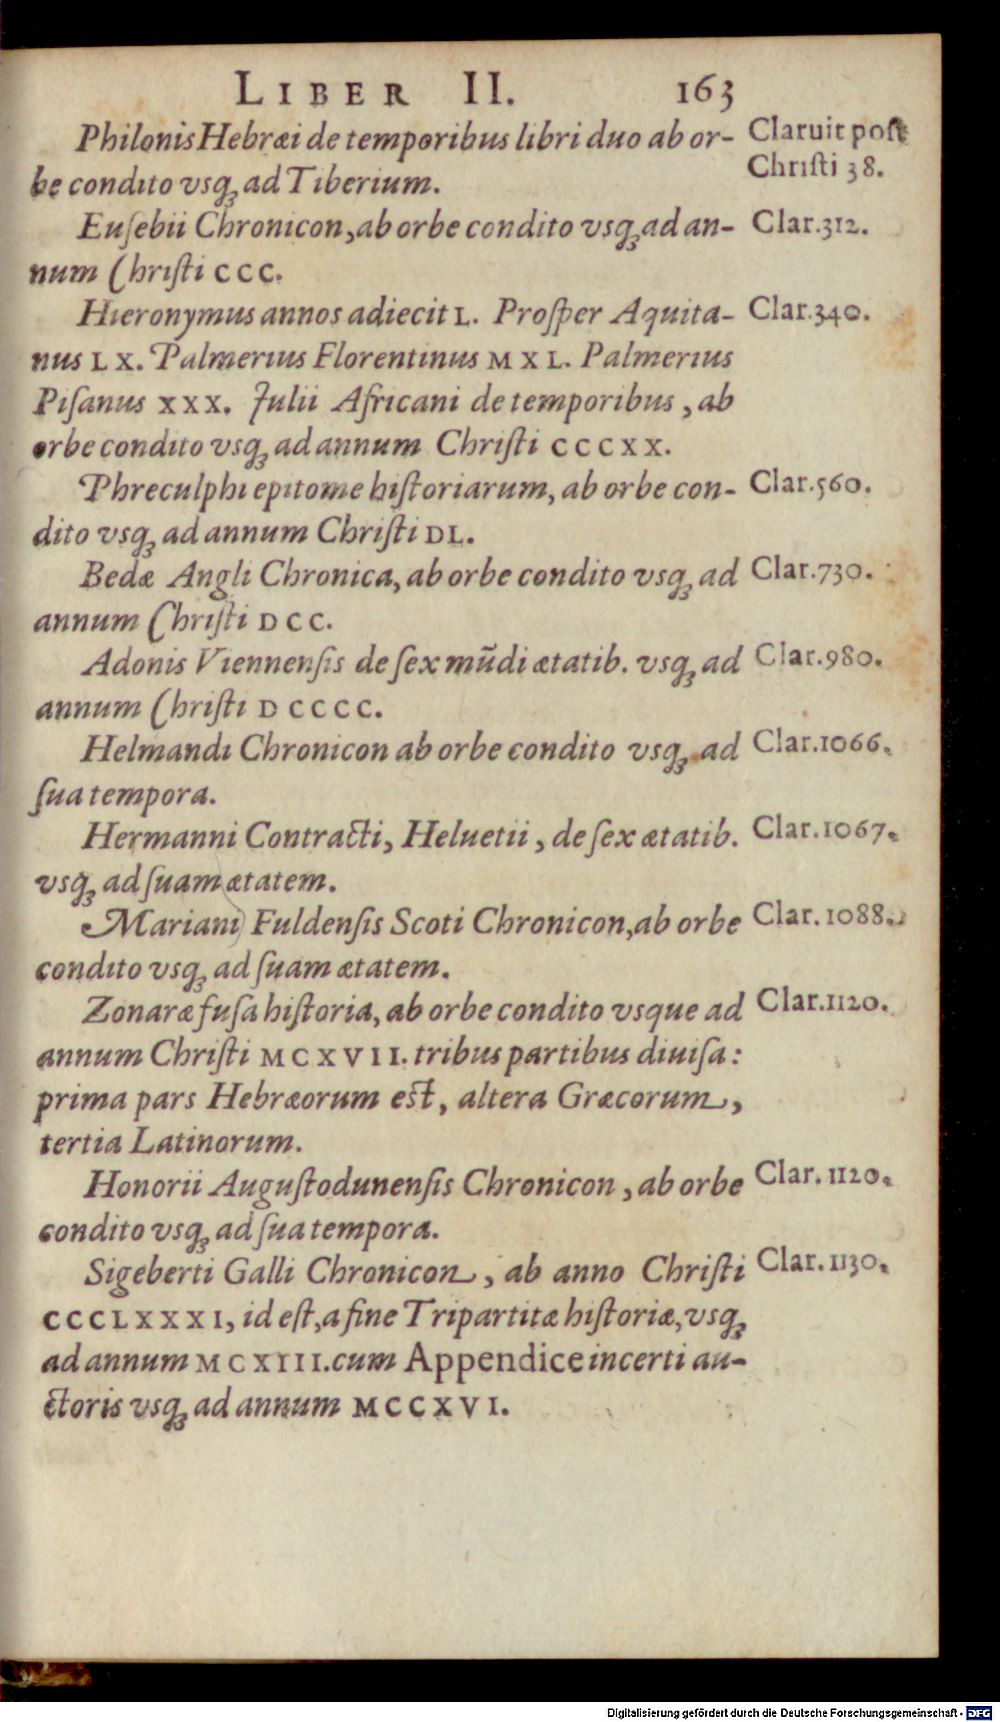 LIBER II. 163
Philonis Hebræi de temporibus libri duo ab or- Claruit post
be condito vsq; ad Tiberium. Christi 38.
Eusebii Chronicon, ab orbe condito vsq; ad an- Clar. 312.
num Christi CCC.
Hieronymus annos adiecit L. Prosper Aquita- Clar. 340.
nus LX. Palmerius Florentinus MXL. Palmerius
Pisanus XXX. Julii Africani de temporibus, ab
orbe condito vsq; ad annum Christi CCCXX.
Phreculphi epitome historiarum, ab orbe con- Clar. 560.
dito vsq; ad annum Christi DL.
Bedæ Angli Chronica, ab orbe condito vsq; ad Clar. 730.
annum Christi DCC.
Adonis Viennensis de sex mũdi ætatib. vsq; ad Clar. 980.
annum Christi DCCCC.
Helmandi Chronicon ab orbe condito vsq; ad Clar. 1066.
sua tempora.
Hermanni Contracti, Heluetii, de sex ætatib. Clar. 1067.
vsq; ad suam ætatem.
Mariani Fuldensis Scoti Chronicon, ab orbe Clar. 1088.
condito vsq; ad suam ætatem.
Zonaræ fusa historia, ab orbe condito vsque ad Clar. 1120.
annum Christi MCXVII. tribus partibus diuisa:
prima pars Hebræorum est, altera Græcorum,
tertia Latinorum.
Honorii Augustodunensis Chronicon, ab orbe Clar. 1120.
condito vsq; ad sua tempora.
Sigeberti Galli Chronicon, ab anno Christi Clar. 1130.
CCCLXXXI, id est, a fine Tripartitæ historiæ, vsq;
ad annum MCXIII. cum Appendice incerti au-
ctoris vsq; ad annum MCCXVI.
Digitalisierung gefördert durch die Deutsche Forschungsgemeinschaft - DFG